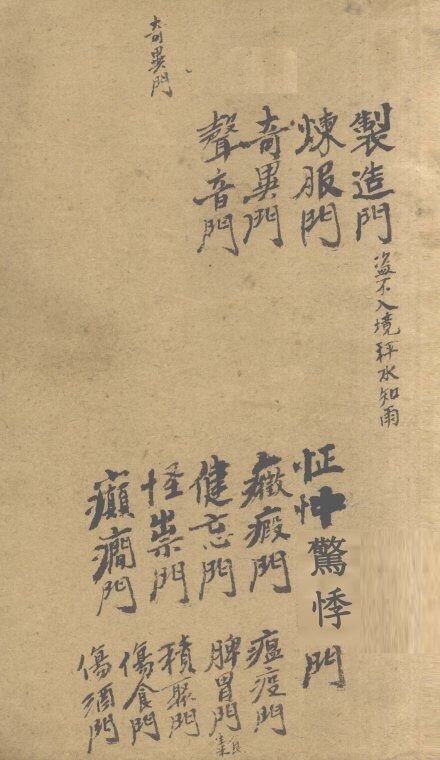 奇異門
製造門
盗不入境秤水知雨
煉服門
奇異門
聲音門
怔忡驚悸門
癥瘕門
健忘門
怪祟門
癲癇門
瘟疫門
脾胃門
積聚門
傷食門
傷酒門